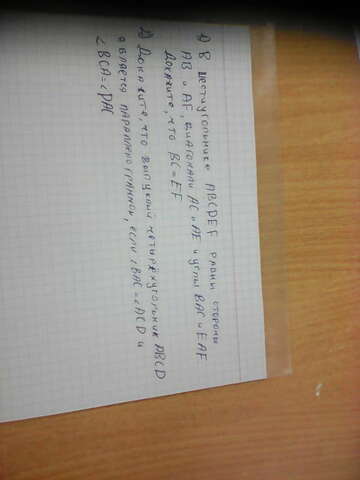 1) В шестиугольнике ABCDEF равны стороны
AB и AF, диагонали AC и AE и углы BAC и EAF
Докажите, что BC = EF
2) Докажите, что выпуклый четырёхугольник ABCD
является параллелограммом, если ∠BAC=∠ACD и
∠BCA=∠DAC